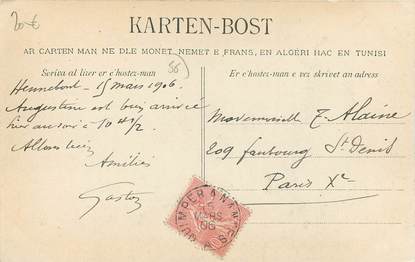 20€
KARTEN-BOST
AR CARTEN MAN NE DLE MONET, NEMET E FRANS, EN ALGÉRI HAC EN TUNISI
56
Scriva al liver er c'hostez-man
Er c'hostez-man e vez skrivet an adress
Hennebont - 15 mars 1906.
Augustine est bien arrivée
hier au soir à 10 h 1/2.
Allons bien
Amitiés
Gaston
Mademoiselle Alaine
209 faubourg St Denis
Paris Xe
QUIMPER A NANTES
MARS
06